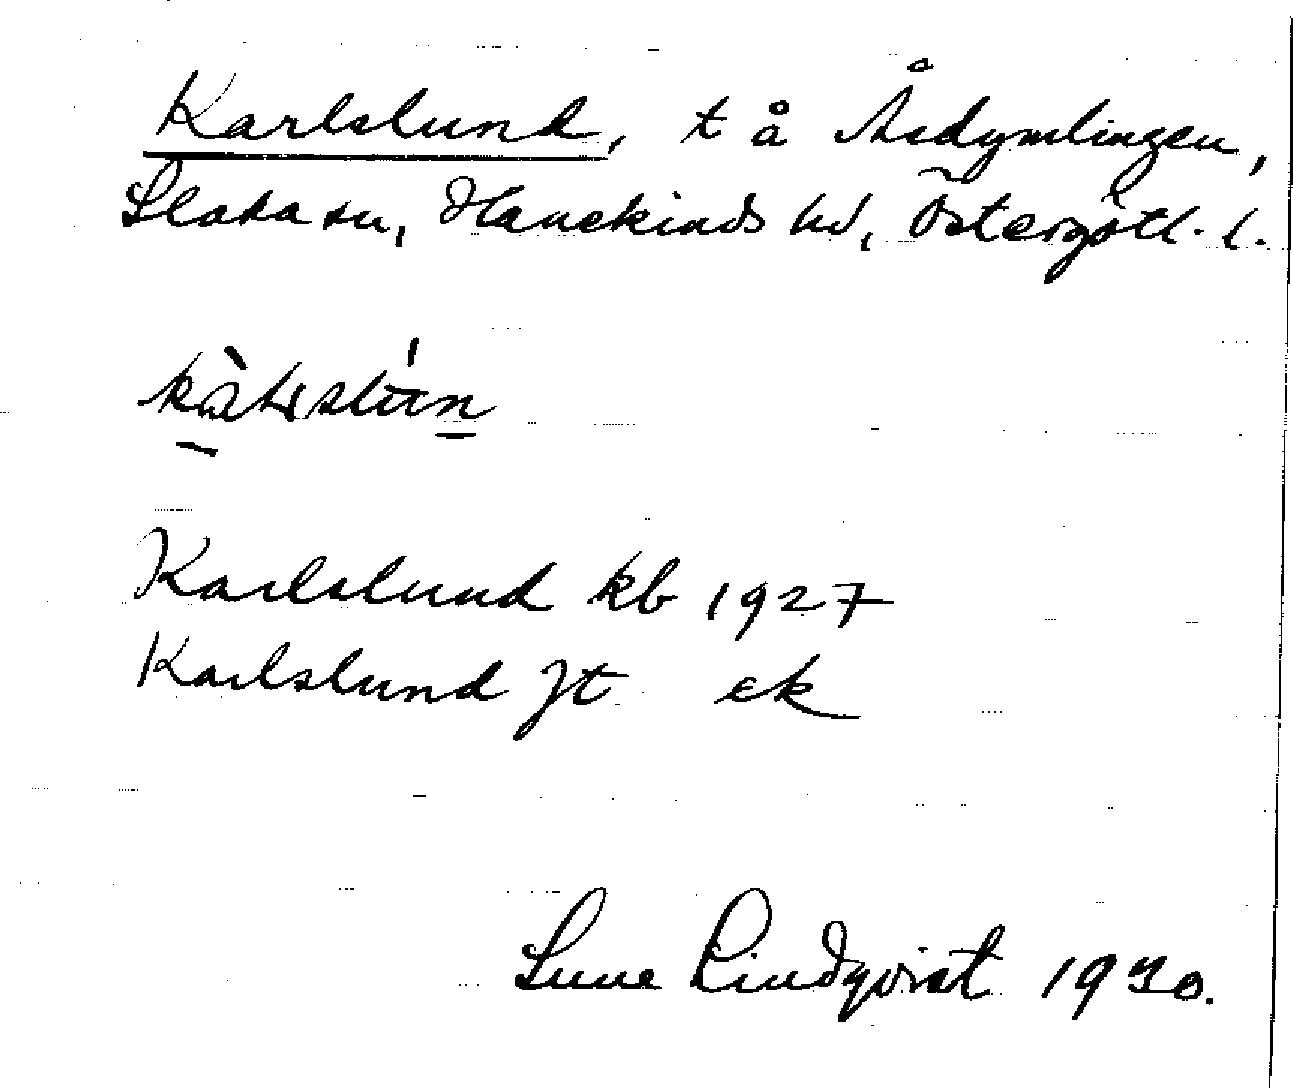 Karlslund, t å Åsdymlingen,
Slaka sn, Hanekinds hd, Östergötl. l.
Karlslund kb 1927
Karlslund Jt ek
Sune Lindqvist 1930.